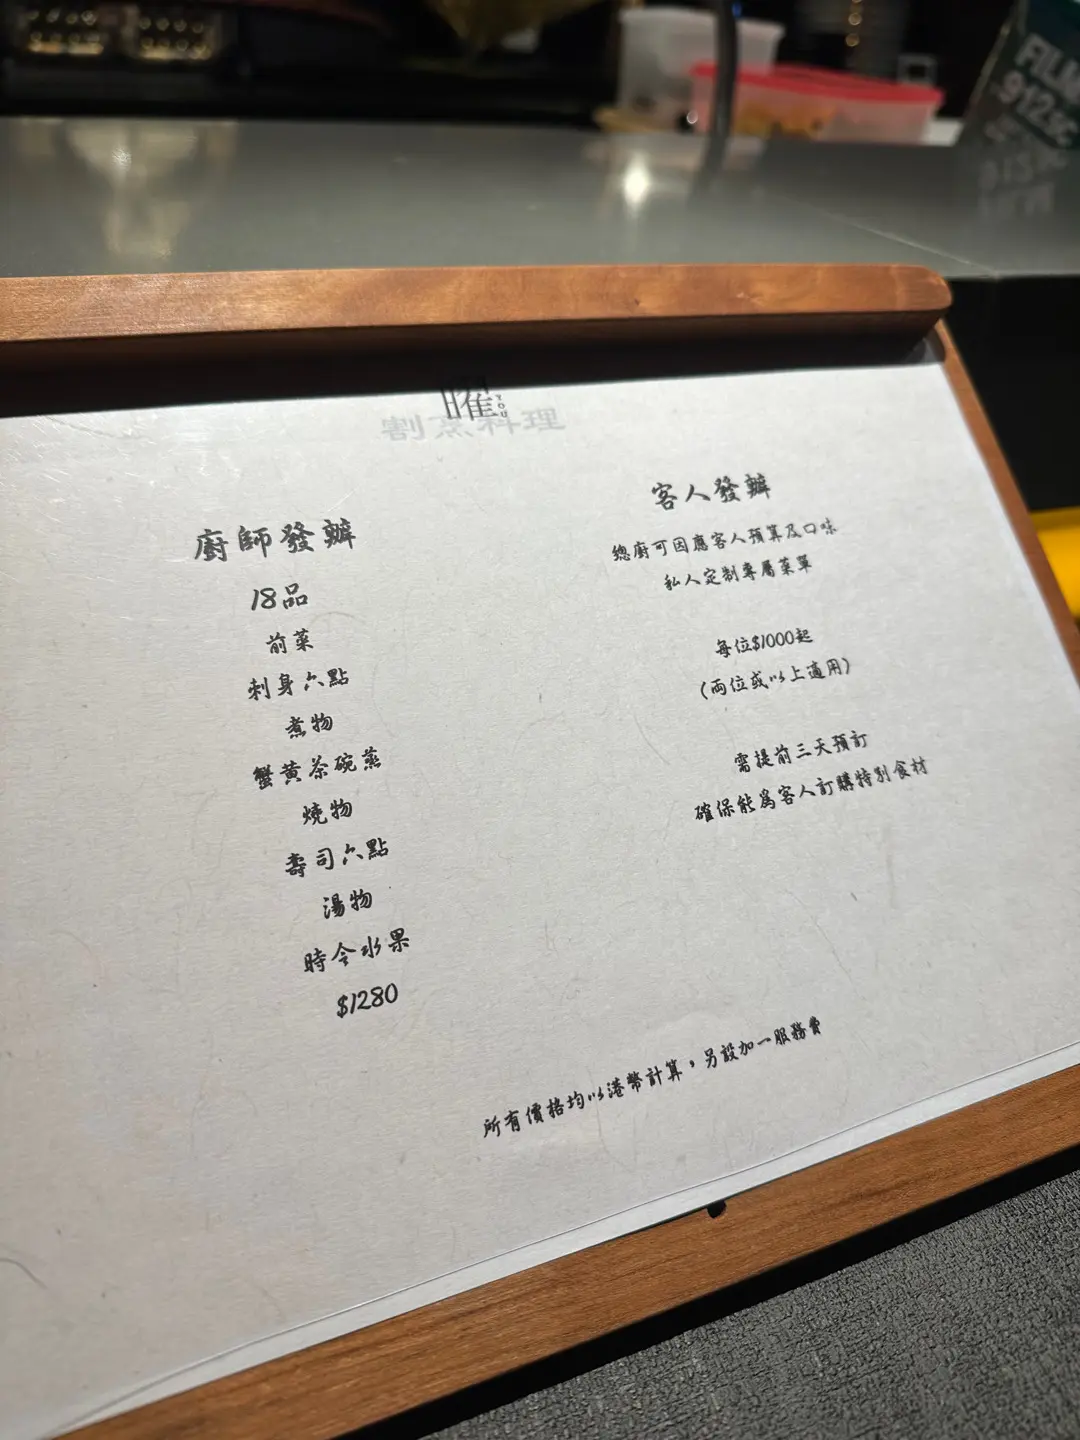 FILM
912
曜
YOU
割烹料理
廚師發辦
18品
前菜
刺身六點
煮物
蟹黃茶碗蒸
燒物
壽司六點
湯物
時令水果
$1280
客人發辦
總廚可因應客人預算及口味
私人定制專屬菜單
每位$1000起
(兩位或以上適用)
需提前三天預訂
確保能為客人訂購特別食材
所有價格均以港幣計算，另設加一服務費